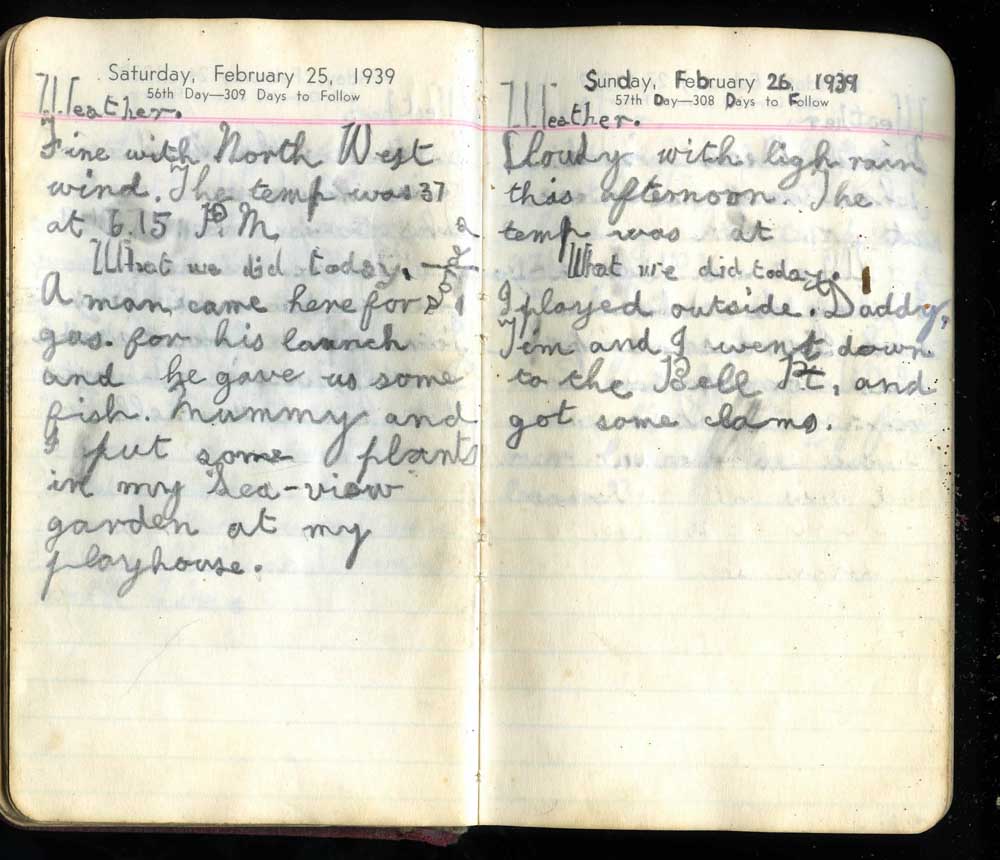 Saturday, February 25, 1939
56th Day—309 Days to Follow
Weather.
Fine with North West
wind. The temp was 37
at 6.15 P.M.
What we did today.
A man came here for
gas. for his launch
and he gave us some
fish. Mummy and
I put some plants
in my Sea-view
garden at my
playhouse.
Sunday, February 26, 1939
57th Day—308 Days to Follow
Weather.
Cloudy with ligh rain
this afternoon. The
temp was at
What we did today.
I played outside. Daddy,
Tim and I went down
to the Bell Pt, and
got some clams.